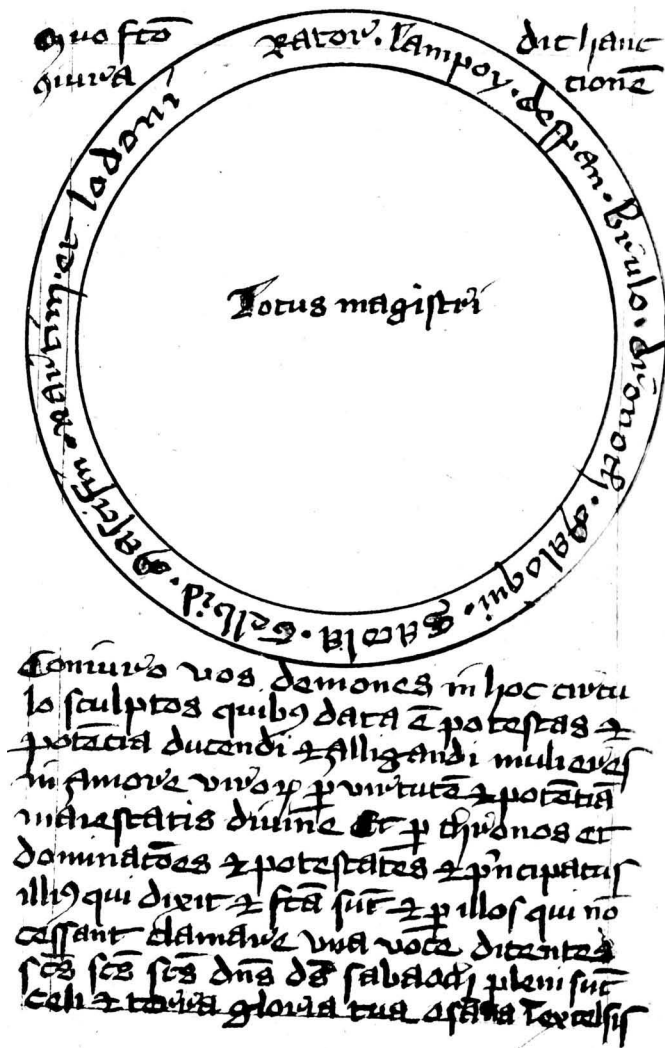 Quo fcō dic hanc
ꝯiura cionē
Rator · Lampoy · despan · brulo · dronoth · Maloqui · Satola · Gelbid · Mascifin · Nartim · et lodoni
Locus magistri
Coniuro vos demones in hoc circu
lo sculptos quibꝰ data ē potestas ⁊
potēcia ducendi ⁊ alligandi mulieres
in amore viroꝝ ꝑ virtutē ⁊ potēciā
maiestatis diuine Et ꝑ thronos et
dominacōes ⁊ potestates ⁊ pͥncipatus
illiꝰ qui dixit ⁊ fcā sūt ⁊ ꝑ illos qui nō
cessant clamare vna voce dicentes
scs̄ scs̄ scs̄ dn̄s ds̄ sabaoth pleni sūt
celi ⁊ terra gloria tua osāna ī excelsis